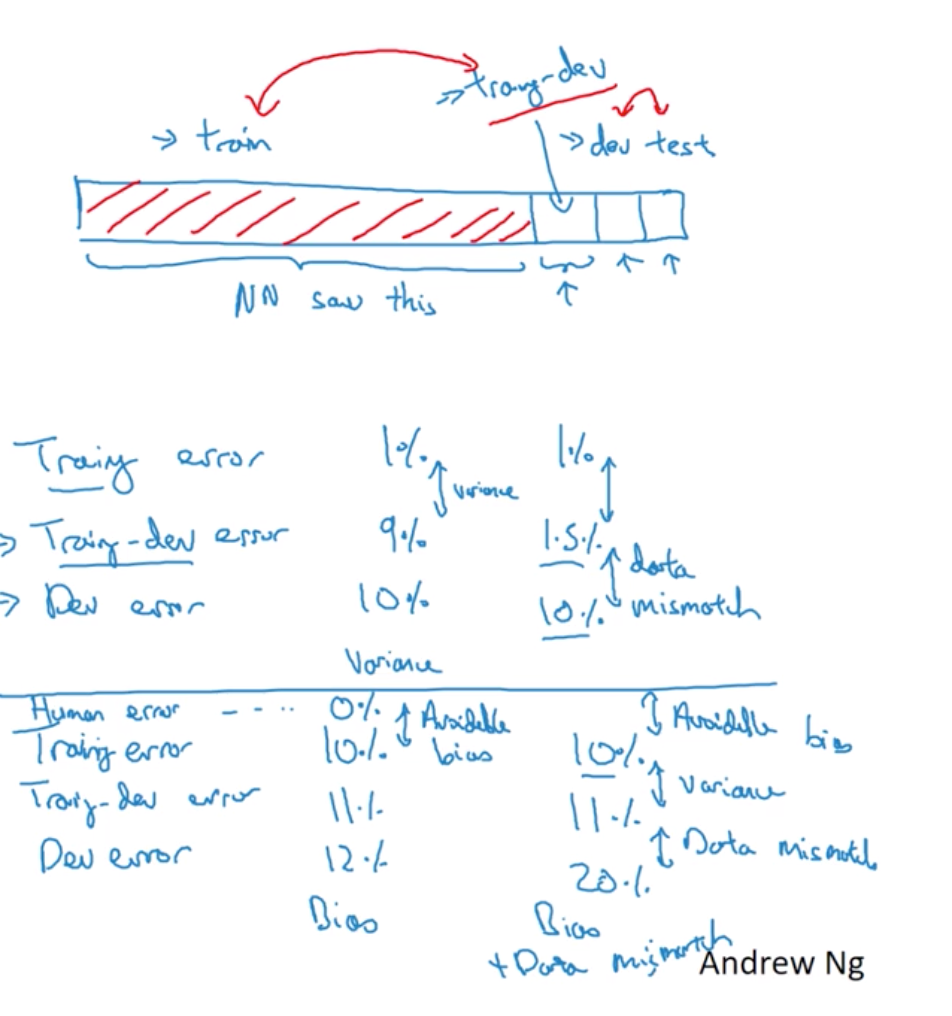 → train
→ traing-dev
→ dev test
NN saw this
Traing error 1% 1%
variance
→ Traing-dev error 9% 1.5%
data
→ Dev error 10% 10% mismatch
Variance
Human error ---- 0% Avoidable Avoidable bias
Traing error 10% bias 10%
Variance
Traing-dev error 11% 11%
Data mismatch
Dev error 12% 20%
Bias Bias
+ Data mismatch
Andrew Ng